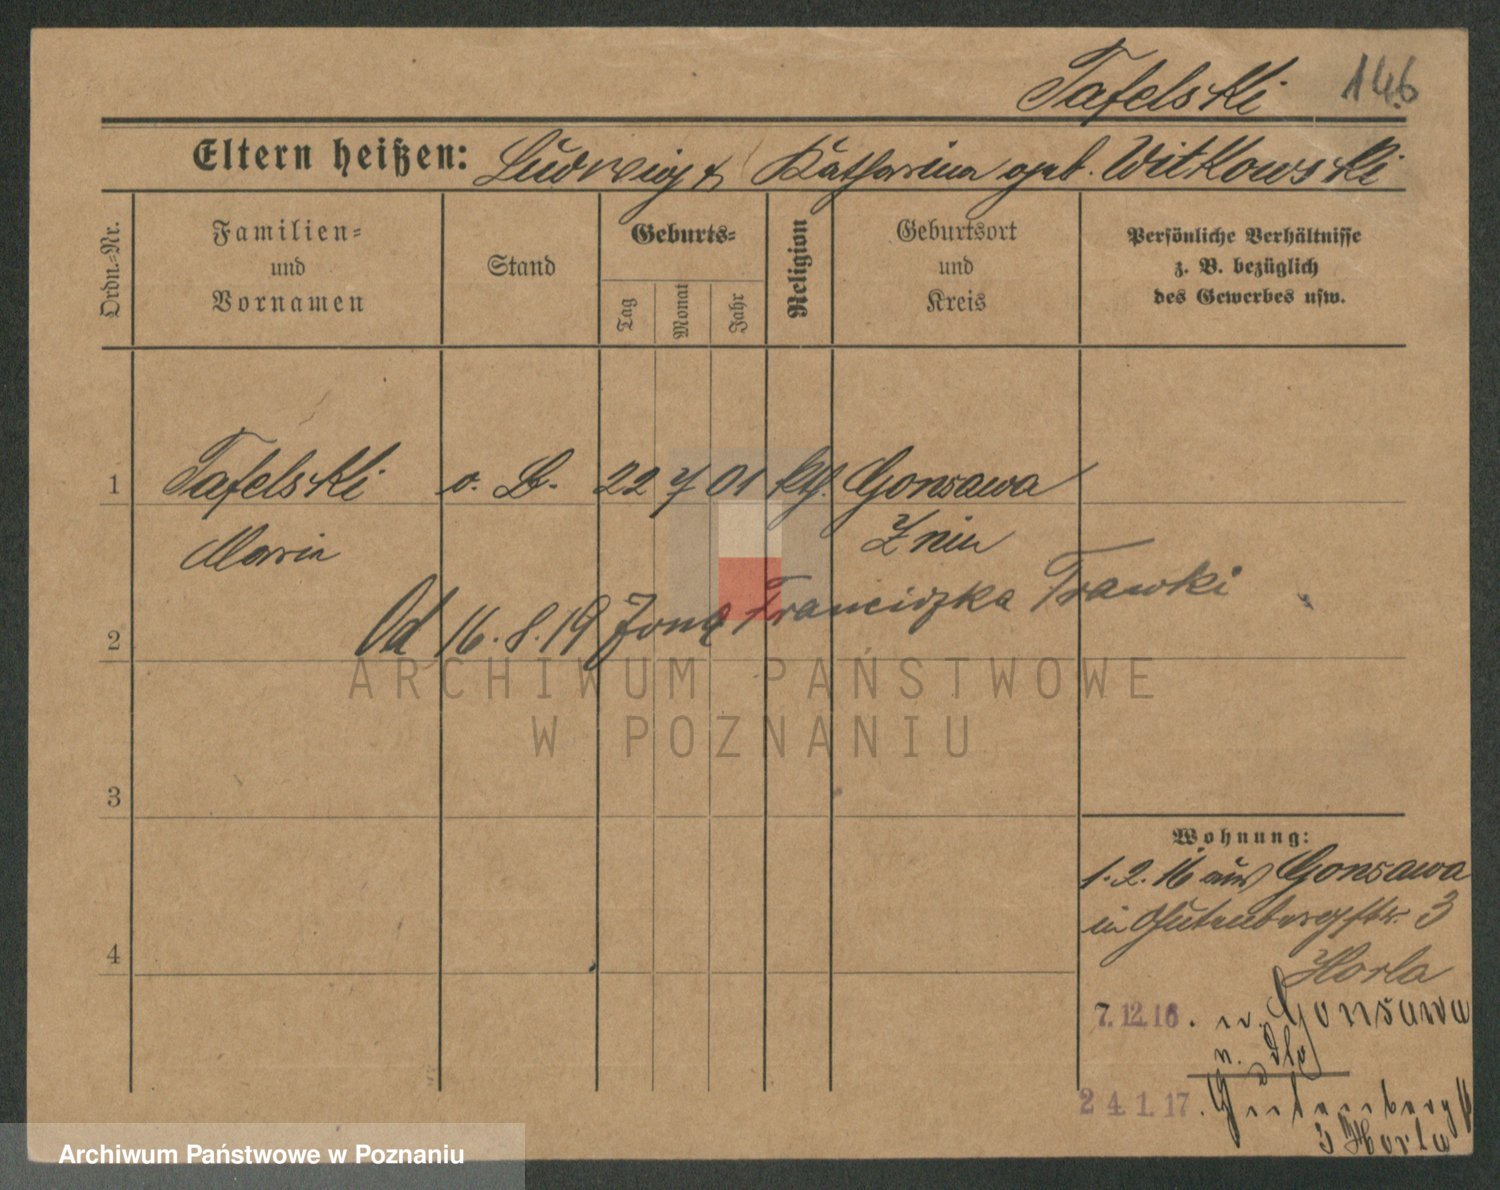 Tafelski 146
Eltern heißen: Ludwig & Katharina geb. Witkowski
Ordn.-Nr.
Familien-
und
Vornamen
Stand
Geburts-
Tag
Monat
Jahr
Religion
Geburtsort
und
Kreis
Persönliche Verhältnisse
z. B. bezüglich
des Gewerbes usw.
1 Tafelski o. B. 22 7 01 kth. Gonsawa
Maria Znin
2 Od 16. 8. 19 Żoną Franciszka Trawki
ARCHIWUM PAŃSTWOWE
W POZNANIU
3
Wohnung:
1. 2. 16 aus Gonsawa
in Gutenbergstr. 3
Horla
4
7. 12. 16. n. Gonsawa
24. 1. 17. Gutenbergst
3 Horla
Archiwum Państwowe w Poznaniu